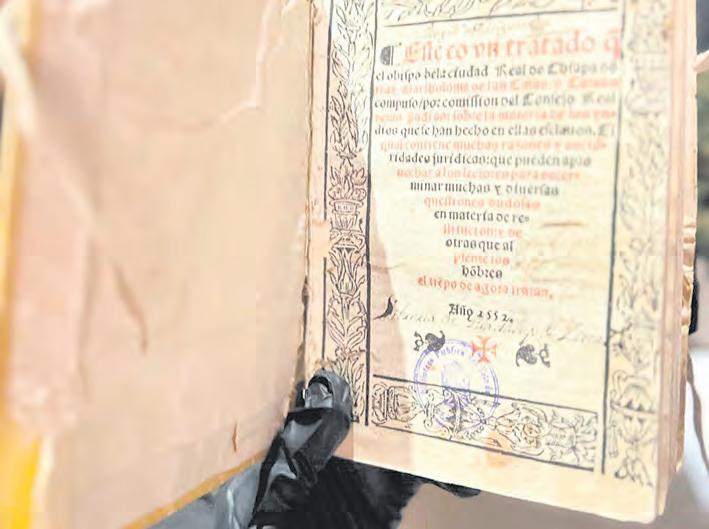 Este es vn tratado q̃
el obispo dela ciudad Real de Chiapa dõ
fray Bartholome de las Casas, o Casaus
compuso, por comission del Consejo Real
delas Indias: sobre la materia de los yn
dios que se han hecho en ellas esclauos. El
qual contiene muchas razones y aucto
ridades juridicas: que pueden apro
uechar a los lectores para deter
minar muchas y diuersas
questiones dudosas
en materia de re
stitucion: y de
otras que al
presente los
hõbres
el tiẽpo de agora tratan.
Año 1552.